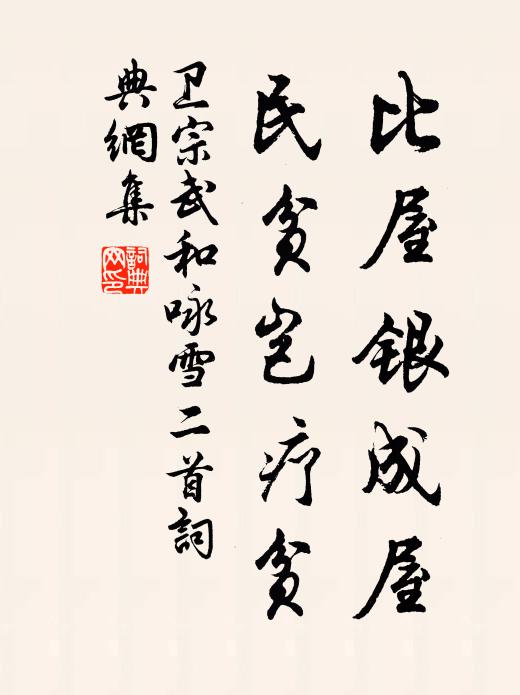 比屋银成屋
民贫岂疗贫
卫宗武和咏雪二首詞
典網集
詞典
网印